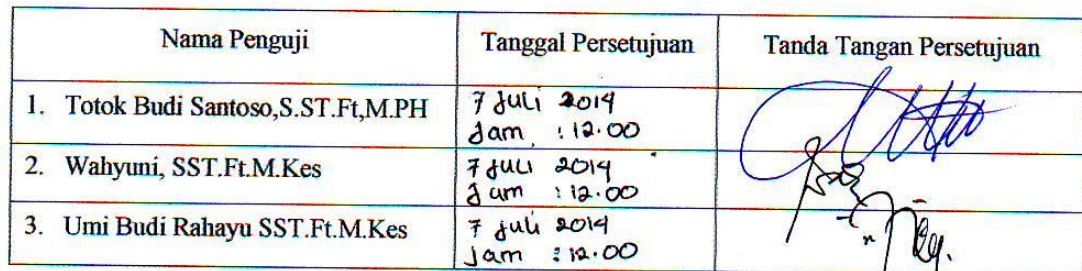 Nama Penguji Tanggal Persetujuan Tanda Tangan Persetujuan
1. Totok Budi Santoso,S.ST.Ft,M.PH 7 Juli 2014
Jam : 12.00
2. Wahyuni, SST.Ft.M.Kes 7 Juli 2014
Jam : 12.00
3. Umi Budi Rahayu SST.Ft.M.Kes 7 juli 2014
Jam : 12.00